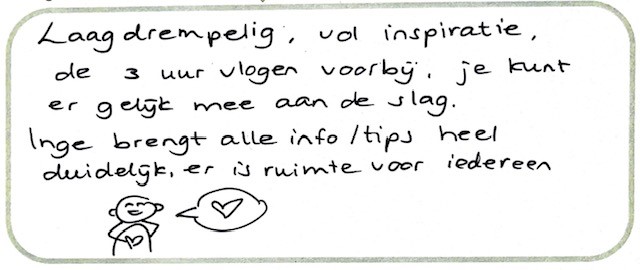 Laagdrempelig, vol inspiratie,
de 3 uur vlogen voorbij, je kunt
er gelijk mee aan de slag.
Inge brengt alle info/tips heel
duidelijk, er is ruimte voor iedereen